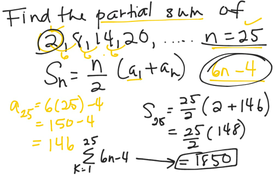 Find the partial sum of
2, 8, 14, 20, ..... n = 25
6 6 6
Sn = n/2 (a1 + an) 6n-4
a25 = 6(25) - 4
= 150 - 4
= 146
S25 = 25/2 (2 + 146)
= 25/2 (148)
= 1850
25 Σ K=1 6n-4